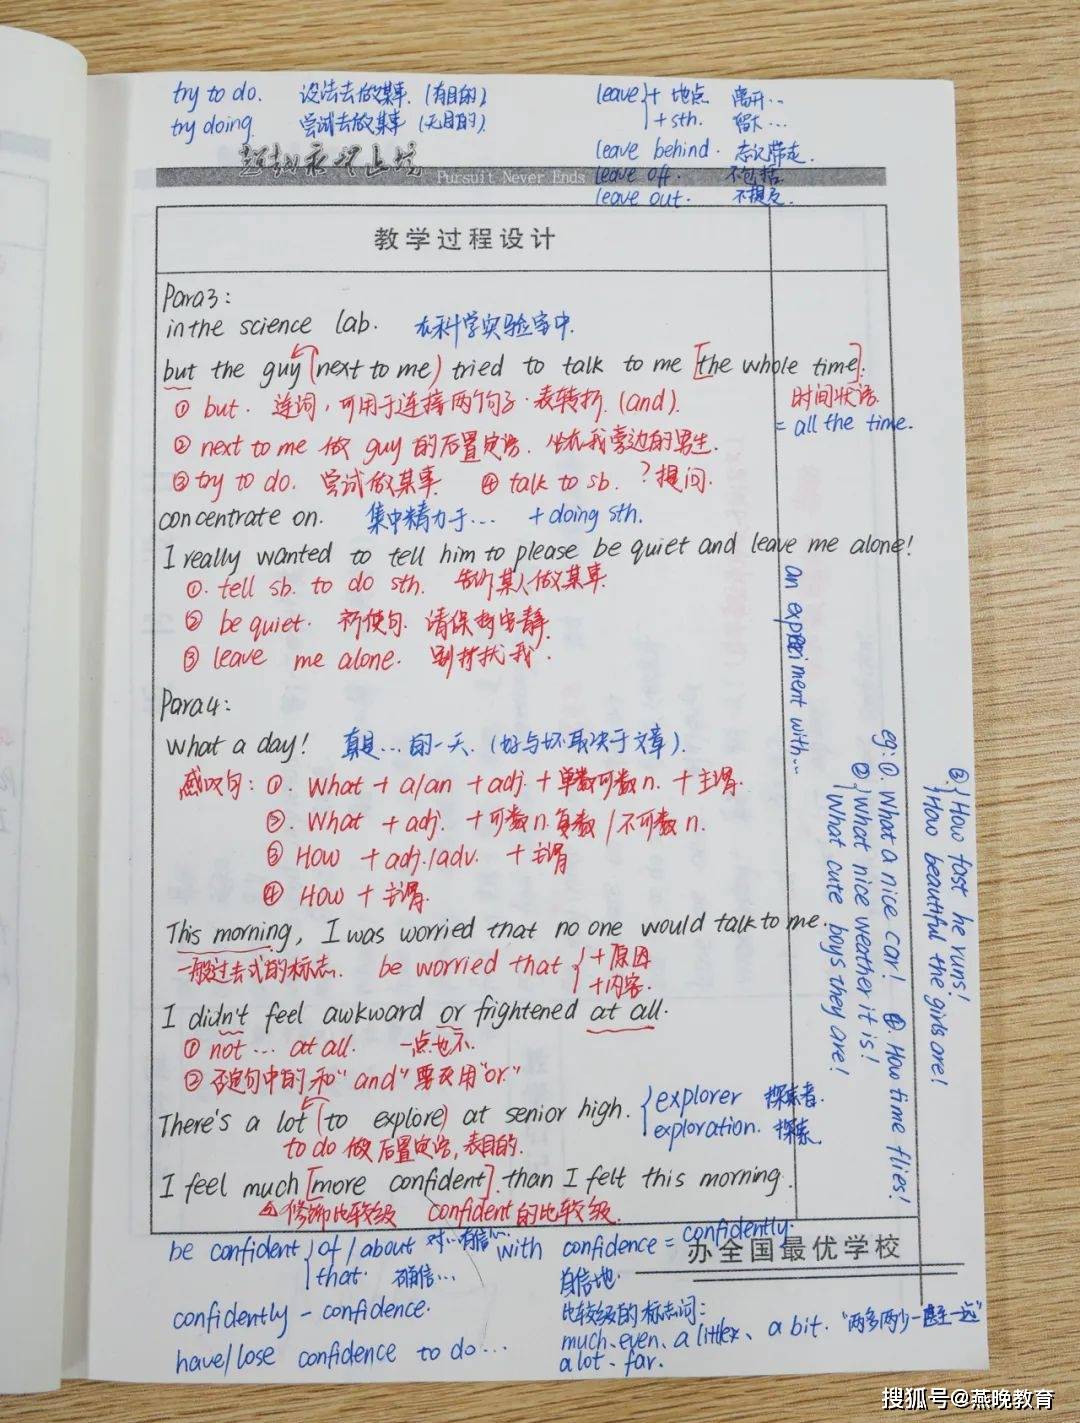 try to do. 设法去做某事. (有目的).
try doing. 尝试去做某事 (无目的).
leave + 地点 离开…
+ sth. 留下…
leave behind. 忘记带走.
leave off. 不包括.
leave out. 不提及.
Pursuit Never Ends
教学过程设计
Para3:
in the science lab. 在科学实验室中.
but the guy (next to me) tried to talk to me [the whole time].
时间状语.
= all the time.
① but. 连词, 可用于连接两个句子. 表转折. (and).
② next to me 做 guy 的后置定语. 坐在我旁边的男生.
③ try to do. 尝试做某事. ④ talk to sb. ? 提问.
concentrate on. 集中精力于… + doing sth.
I really wanted to tell him to please be quiet and leave me alone!
①. tell sb. to do sth. 告诉某人做某事.
② be quiet. 祈使句. 请保持安静.
③ leave me alone. 别打扰我.
an experiment with…
Para4:
What a day! 真是…的一天. (好与坏取决于文章).
感叹句: ①. What + a/an + adj. + 单数可数 n. + 主谓.
②. What + adj. + 可数 n. 复数 / 不可数 n.
③ How + adj./adv. + 主谓
④ How + 主谓.
eg: ①. What a nice car! ④. How time flies!
② What nice weather it is!
What cute boys they are!
③ How fast he runs!
How beautiful the girls are!
This morning, I was worried that no one would talk to me.
一般过去式的标志. be worried that + 原因
+ 内容.
I didn't feel awkward or frightened at all.
① not … at all. 一点也不.
② 否定句中的和"and"要改用"or."
There's a lot (to explore) at senior high. explorer 探索者.
exploration. 探索.
to do 做后置定语, 表目的.
I feel much [more confident]. than I felt this morning.
修饰比较级 confident 的比较级.
be confident of / about 对…有信心… with confidence = confidently.
that. 确信… 自信地.
办全国最优学校
confidently - confidence.
have/lose confidence to do …
比较级的标志词:
much、even、a little、a bit. "两多两少一甚至一远"
a lot、far.
搜狐号@燕晚教育